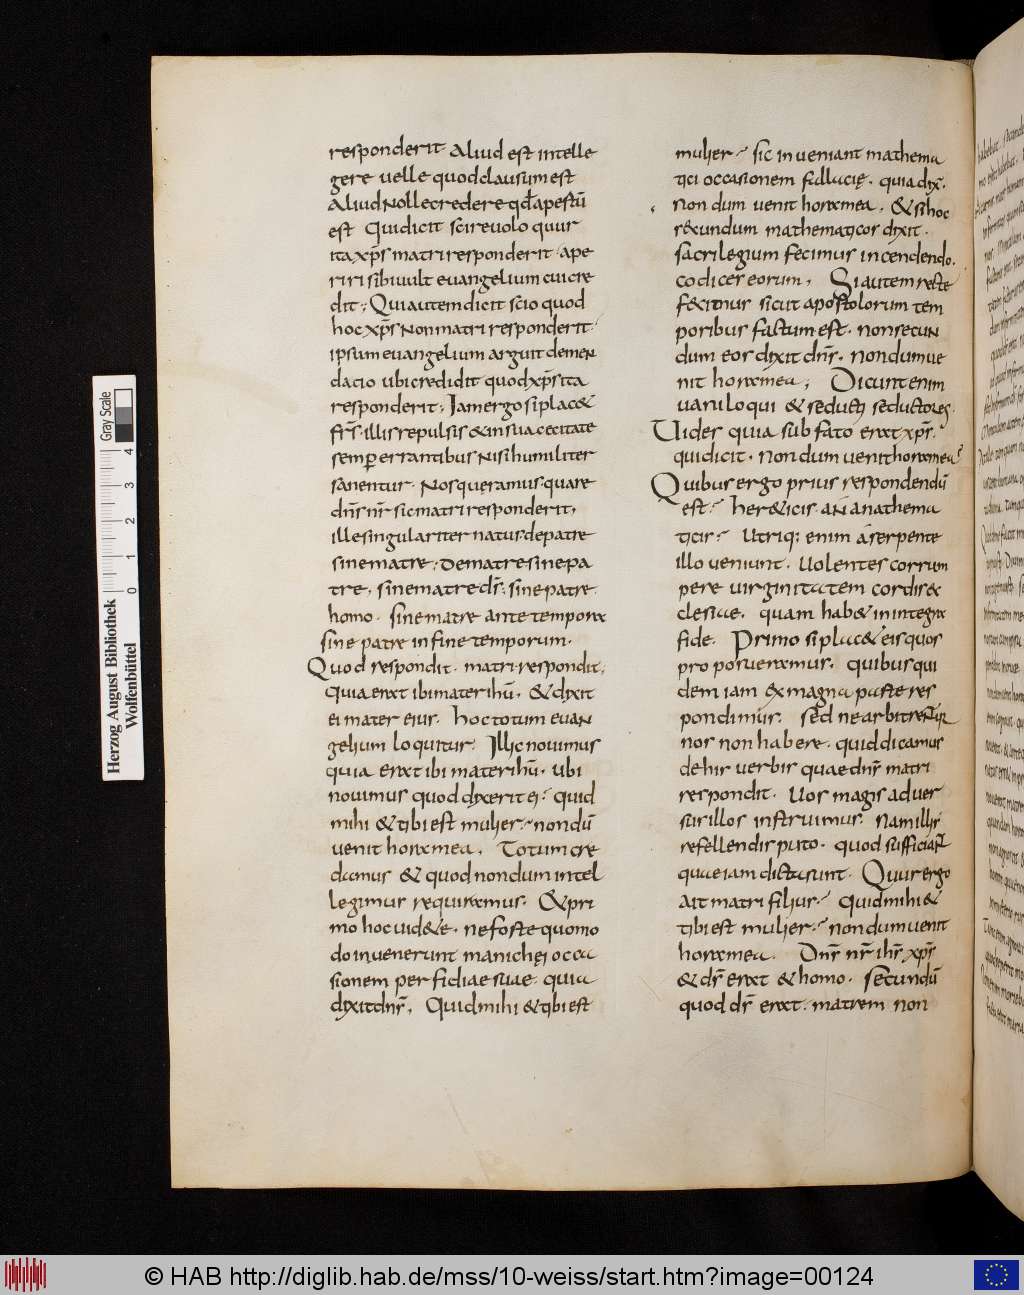 responderit Aliud est intelle
gere uelle quod clausum est
Aliud Nolle credere qđ apestū
est Qui dicit scire uolo quur
ita xp̄s matri responderit · ape
riri sibi uult euangelium cui cre
dit ; Qui autem dicit scio quod
hoc xp̄s Non matri responderit ·
ipsum euangelium arguit demen
dacio ubi credidit quod xp̄s ita
responderit ; Iam ergo si plac&
fr̄s · illis repulsis & in sua cecitate
semp̱ errantibus Nisi humiliter
sanentur · Nos queramus quare
dn̄s nr̄ sic matri responderit ,
ille singulariter natus de patre
sine matre ; De matre sine pa
tre , sine matre dš ; sine patre
homo · sine matre ante tempora
sine patre in fine temporum ·
Quod respondit · matri respondit ,
Quia erat ibi mater ihū · & dixit
ei mater eius · hoc totum euan
gelium loquitur · Illic nouimus
quia erat ibi mater ihū · Ubi
nouimus quod dixerit ei · quid
mihi & tibi est mulier · nondū
uenit hora mea , Totum cre
damus & quod nondum intel
legimus requiramus · & pri
mo hoc uid&e · ne forte quomo
do inuenerunt manichei occa
sionem perfidiae suae · quia
dixit dn̄s , Quid mihi & tibi est
mulier · sic inueniant mathema
tici occasionem fallacię · quia dix̄ ·
non dum uenit hora mea , & si hoc
secundum mathematicos dixit ·
sacrilegium fecimus incendendo
codices eorum , Si autem recte
fecimus sicut apostolorum tem
poribus factum est · non secun
dum eos dixit dn̄s · nondum ue
nit hora mea ; Dicunt enim
uaniloqui & seducti seductores ·
Uides quia sub fato erat xp̄s ·
qui dicit · non dum uenit hora mea
Quibus ergo prius respondendū
est · her&icis · an a mathema
ticis · Utriq; enim a serpente
illo ueniunt · Uolentes corrum
pere uirginitatem cordis ec
clesiae · quam hab& in integra
fide · Primo si plac& eis quos
proposueramus · quibus qui
dem iam ex magna parte res
pondimus · sed ne arbitrentur
nos non habere · quid dicamus
de his uerbis quae dn̄s matri
respondit · Uos magis aduer
sus illos instruimus · Nam illis
refellendis puto · quod sufficiant
quae iam dicta sunt · Quur ergo
ait matri filius · Quid mihi &
tibi est mulier · non dum uenit
hora mea · Dn̄s nr̄ ihs̄ xp̄s
& dš erat & homo · secundū
quod dš erat · matrem non
Gray Scale
0 1 2 3 4
Herzog August Bibliothek
Wolfenbüttel
© HAB http://diglib.hab.de/mss/10-weiss/start.htm?image=00124